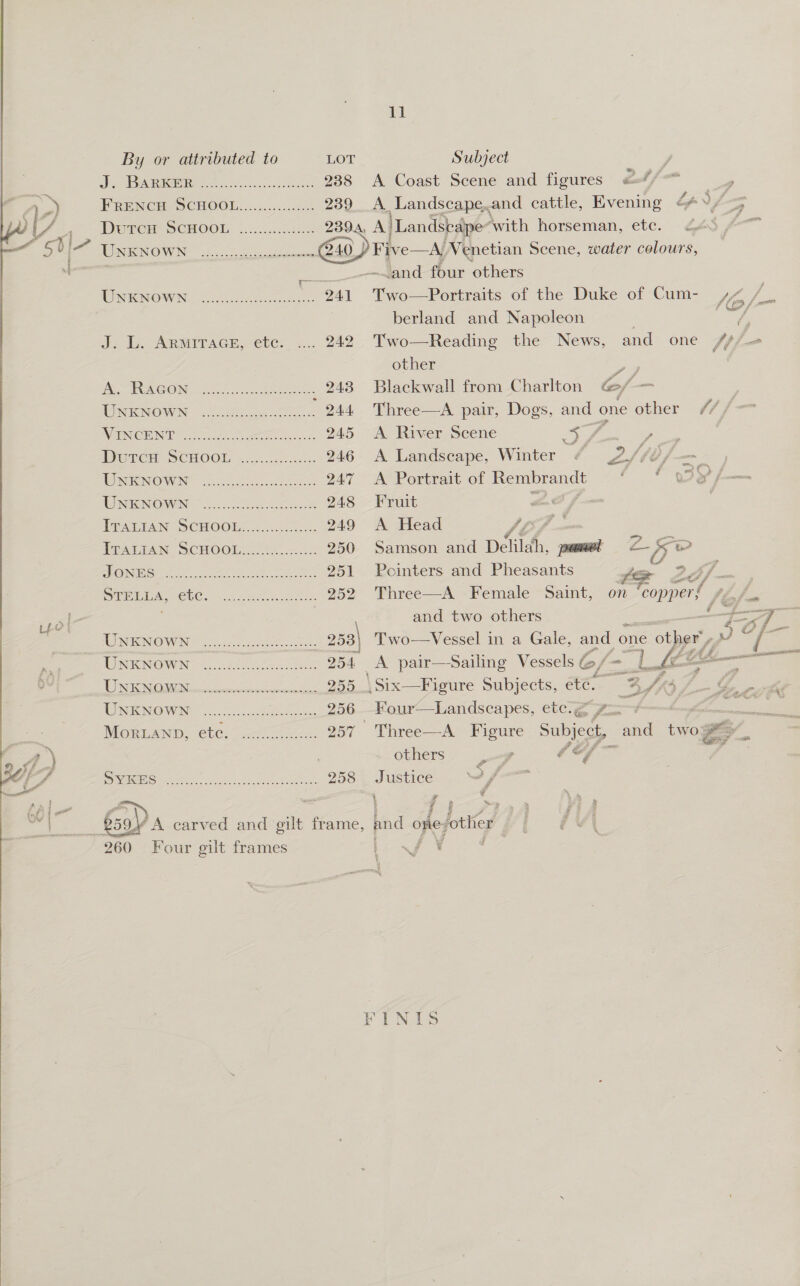 11
By or attributed to LOT Subject
J. BARKER ............ 238 A Coast Scene and figures
FRENCH SCHOOL ............ 239 A Landscape and cattle, Evening
DUTCH SCHOOL ............ 239A A Landscape with horseman, etc.
UNKNOWN ............ 240 Five—A Venetian Scene, water colours,
and four others
UNKNOWN ............ 241 Two—Portraits of the Duke of Cum-
berland and Napoleon
J. L. ARMITAGE, etc. .... 242 Two—Reading the News, and one
other
A. RAGON ............ 243 Blackwall from Charlton
UNKNOWN ............ 244 Three—A pair, Dogs, and one other
VINCENT ............ 245 A River Scene
DUTCH SCHOOL ............ 246 A Landscape, Winter
UNKNOWN ............ 247 A Portrait of Rembrandt
UNKNOWN ............ 248 Fruit
ITALIAN SCHOOL ............ 249 A Head
ITALIAN SCHOOL ............ 250 Samson and Delilah,
JONES ............ 251 Pointers and Pheasants
STELLA, etc. ............ 252 Three—A Female Saint, on copper,
and two others
UNKNOWN ............ 253 Two—Vessel in a Gale, and one other
UNKNOWN ............ 254 A pair—Sailing Vessels
UNKNOWN ............ 255 Six—Figure Subjects, etc.
UNKNOWN ............ 256 Four—Landscapes, etc.
MORLAND, etc. ............ 257 Three—A Figure Subject, and two
others
SYKES ............ 258 Justice
259 A carved and gilt frame, and one other
260 Four gilt frames
FINIS